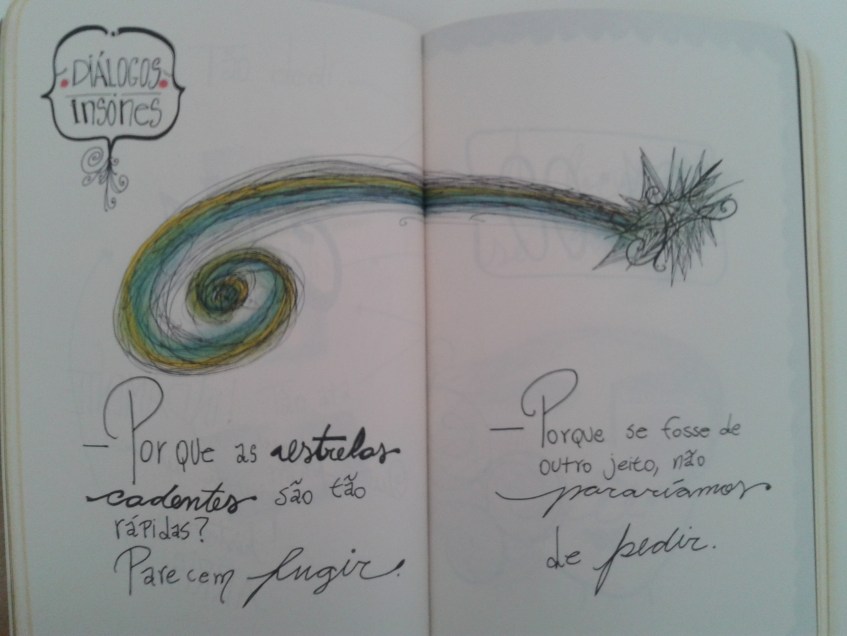 DIÁLOGOS
INSONES
— Por que as estrelas
cadentes são tão
rápidas?
Parecem fugir.
— Porque se fosse de
outro jeito, não
pararíamos
de pedir.